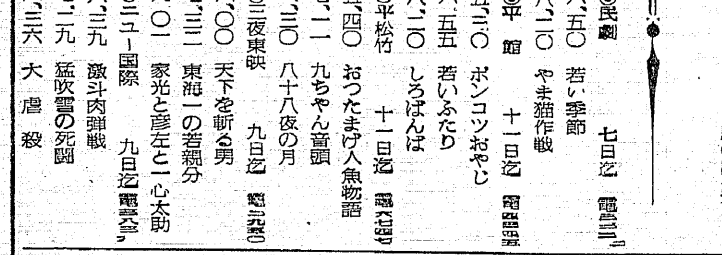 民劇 七日迄
五〇 若い季節
二〇 やま猫作戦
平館 十一日迄
三〇 ポンコツおやじ
五五 若いふたり
二〇 しろばんば
平松竹 十一日迄
四〇 おつたまげ人魚物語
一一 九ちゃん音頭
三〇 八十八夜の月
三夜東映 九日迄
〇〇 天下を斬る男
三二 東海一の若親分
〇一 家光と彦左と一心太助
ニュー国際 九日迄
三九 激斗肉弾戦
二九 猛吹雪の死闘
三六 大虐殺